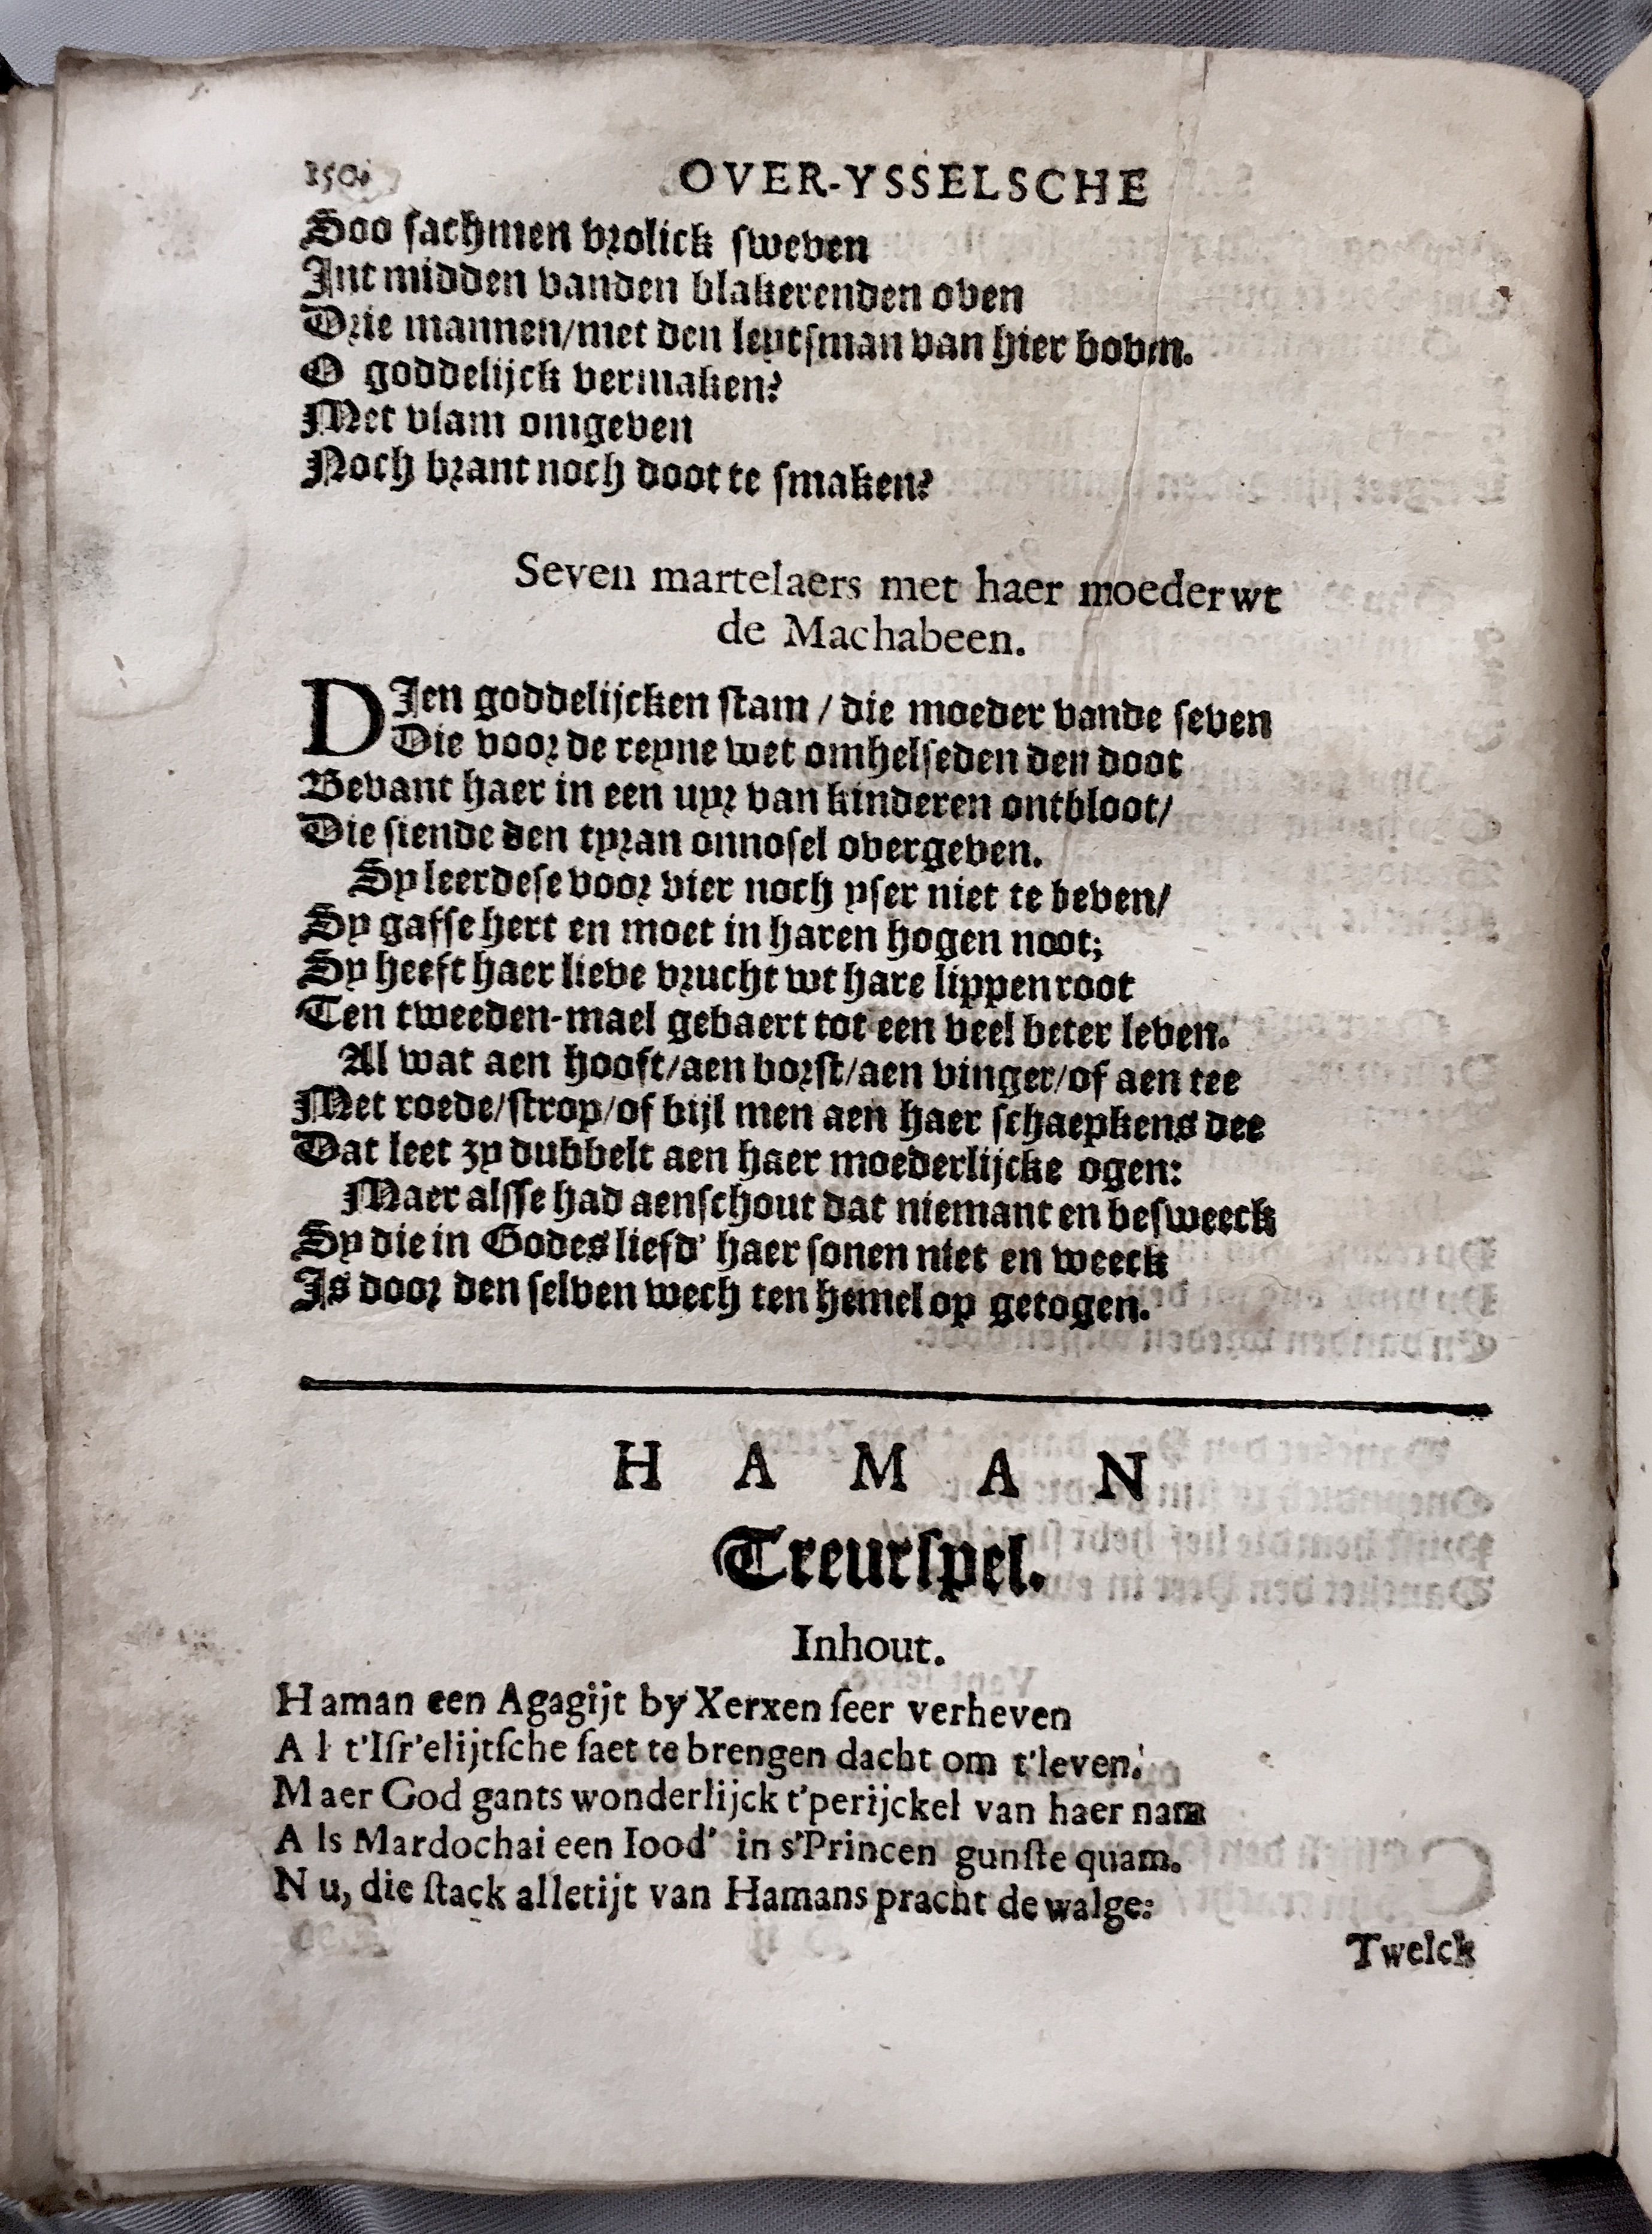 150.
OVER-YSSELSCHE
Soo sachmen vrolick sweven
Int midden vanden blakerenden oven
Drie mannen/met den leytsman van hier boven.
O goddelijck vermaken?
Met vlam omgeven
Noch brant noch doot te smaken?
Seven martelaers met haer moeder wt
de Machabeen.
DIen goddelijcken stam / die moeder vande seven
Die voor de reyne wet omhelseden den doot
Bevant haer in een uyr van kinderen ontbloot/
Die siende den tyran onnosel overgeven.
Sy leerdese voor vier noch yser niet te beven/
Sy gafse hert en moet in haren hogen noot;
Sy heeft haer lieve vrucht wt hare lippen root
Ten tweeden-mael gebaert tot een veel beter leven.
Al wat aen hooft/aen borst/aen vinger/of aen tee
Met roede/strop/of bijl men aen haer schaepkens dee
Dat leet zy dubbelt aen haer moederlijcke ogen:
Maer alsse had aenschout dat niemant en besweeck
Sy die in Godes liefd' haer sonen niet en weeck
Is door den selven wech ten hemel op getogen.
H A M A N
Treurspel.
Inhout.
Haman een Agagijt by Xerxen seer verheven
Al t'Isr'elijtsche saet te brengen dacht om t'leven.
Maer God gants wonderlijck t'perijckel van haer nam
Als Mardochai een Iood' in s'Princen gunste quam.
Nu, die stack alletijt van Hamans pracht de walge:
Twelck